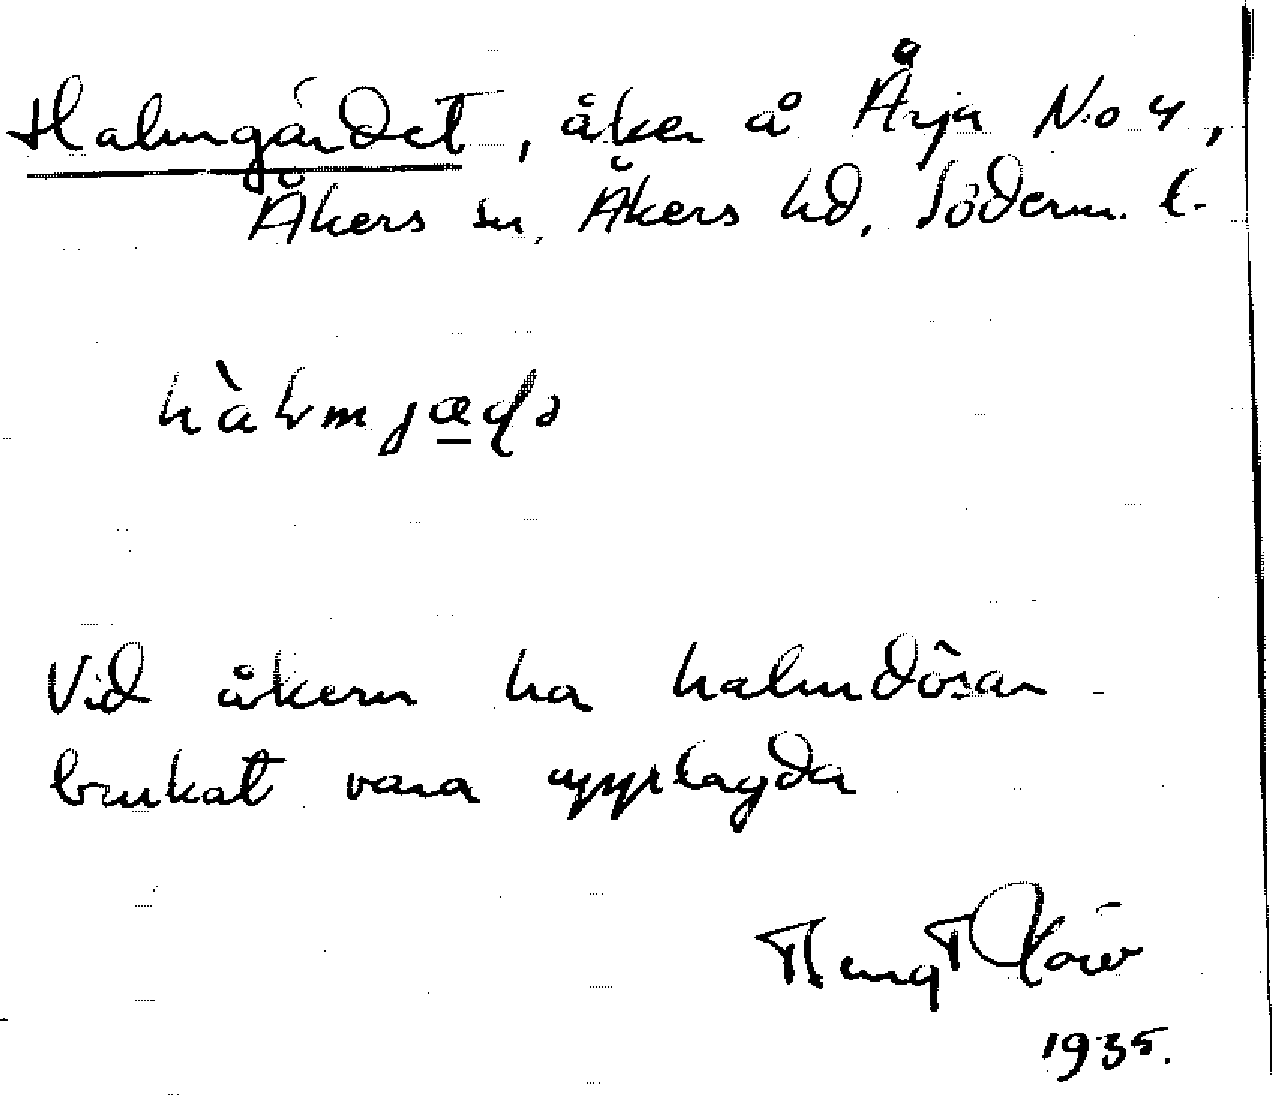 Halmgärdet, åker å Årja No 4,
Åkers sn, Åkers hd, Söderm. l.
hàlmjæḍə
Vid åkern ha halmdösar
brukat vara upplagda
Bengt
1935.